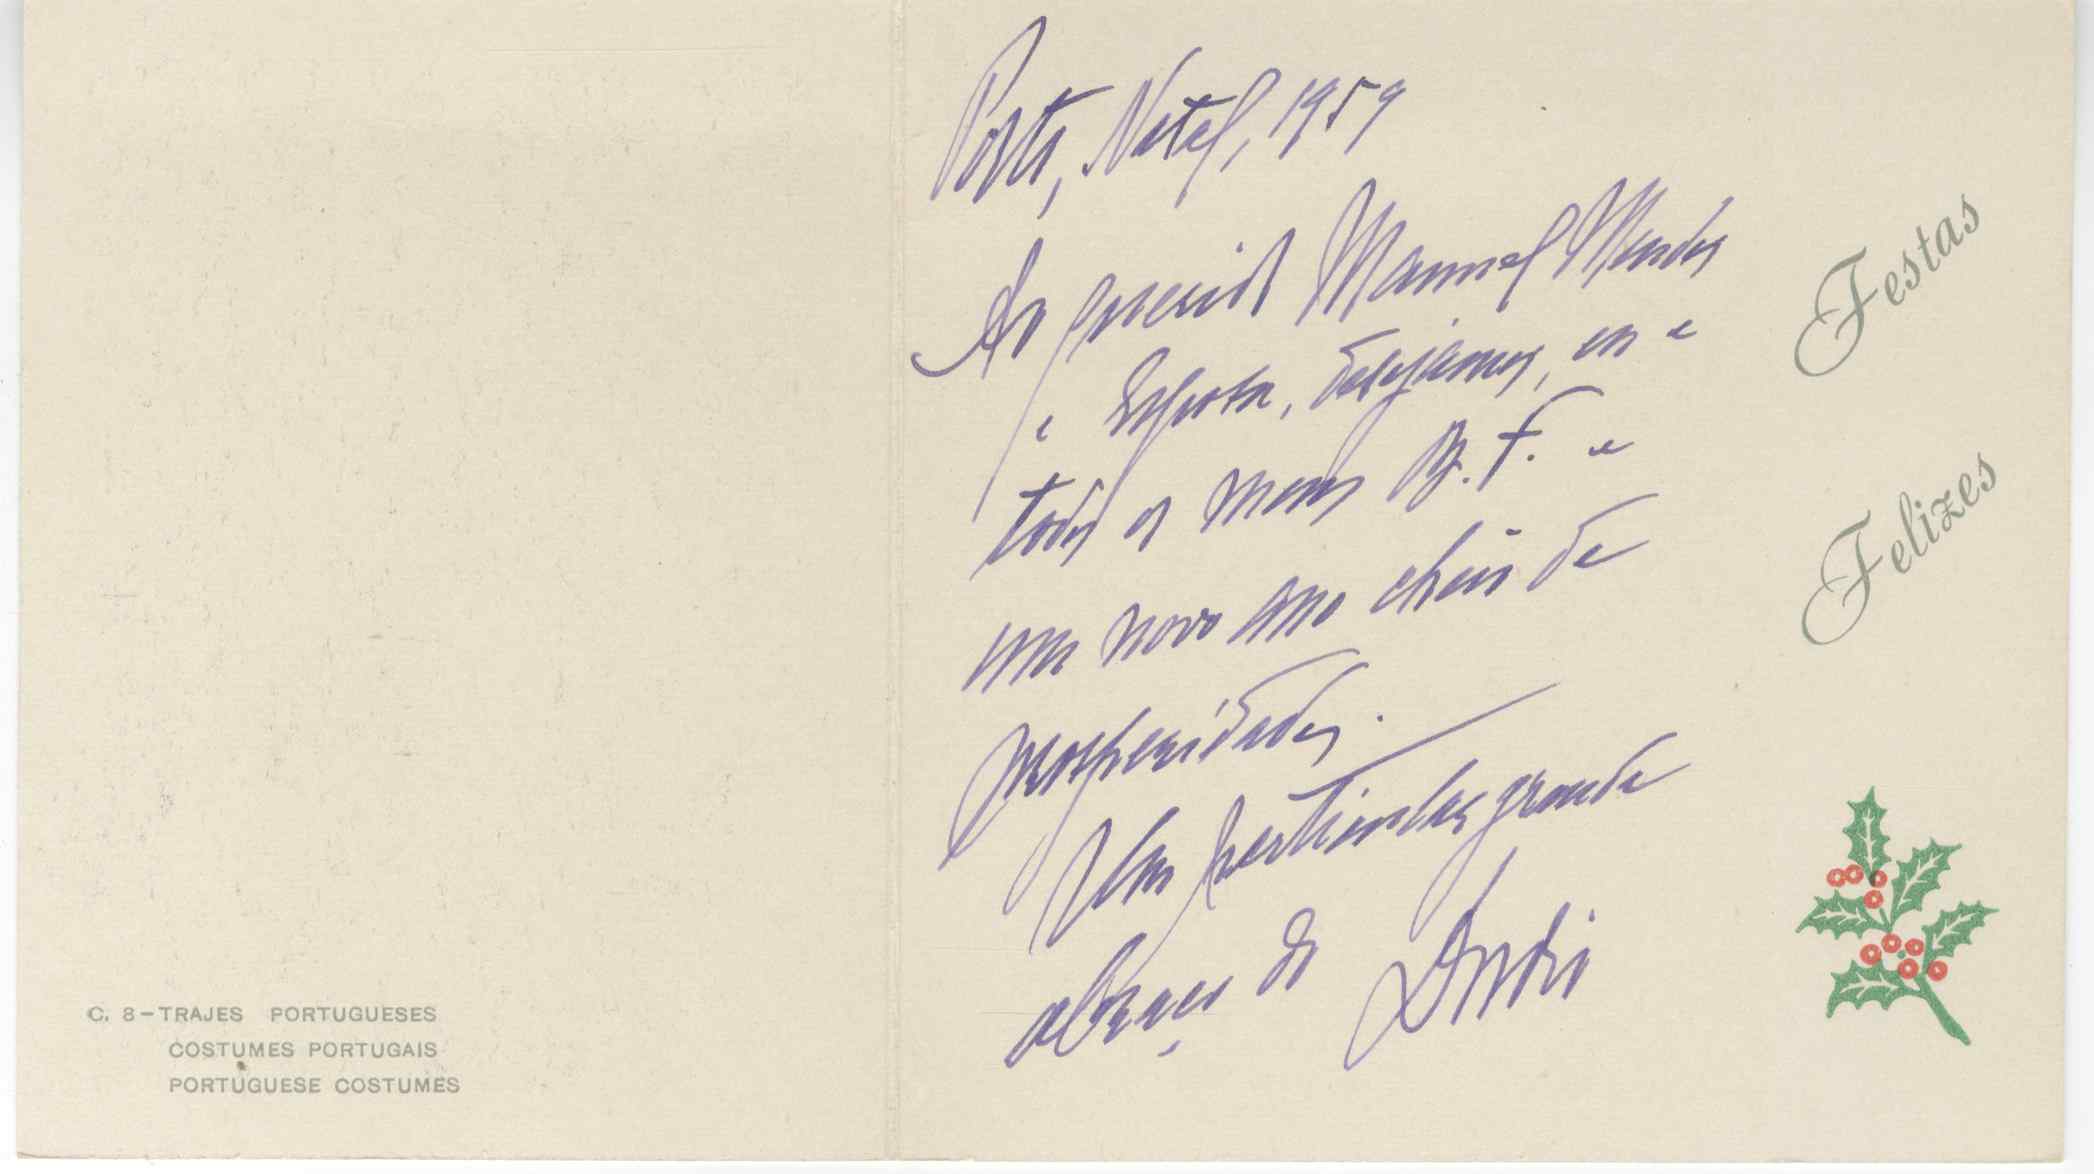 Porto, Natal, 1959
Ao querido Manuel Mendes
e Esposa, desejamos, eu e
todos os meus B. F. e
um novo ano cheio de
prosperidades.
Um particular grande
abraço do
Festas
Felizes
C. 8-TRAJES PORTUGUESES
COSTUMES PORTUGAIS
PORTUGUESE COSTUMES